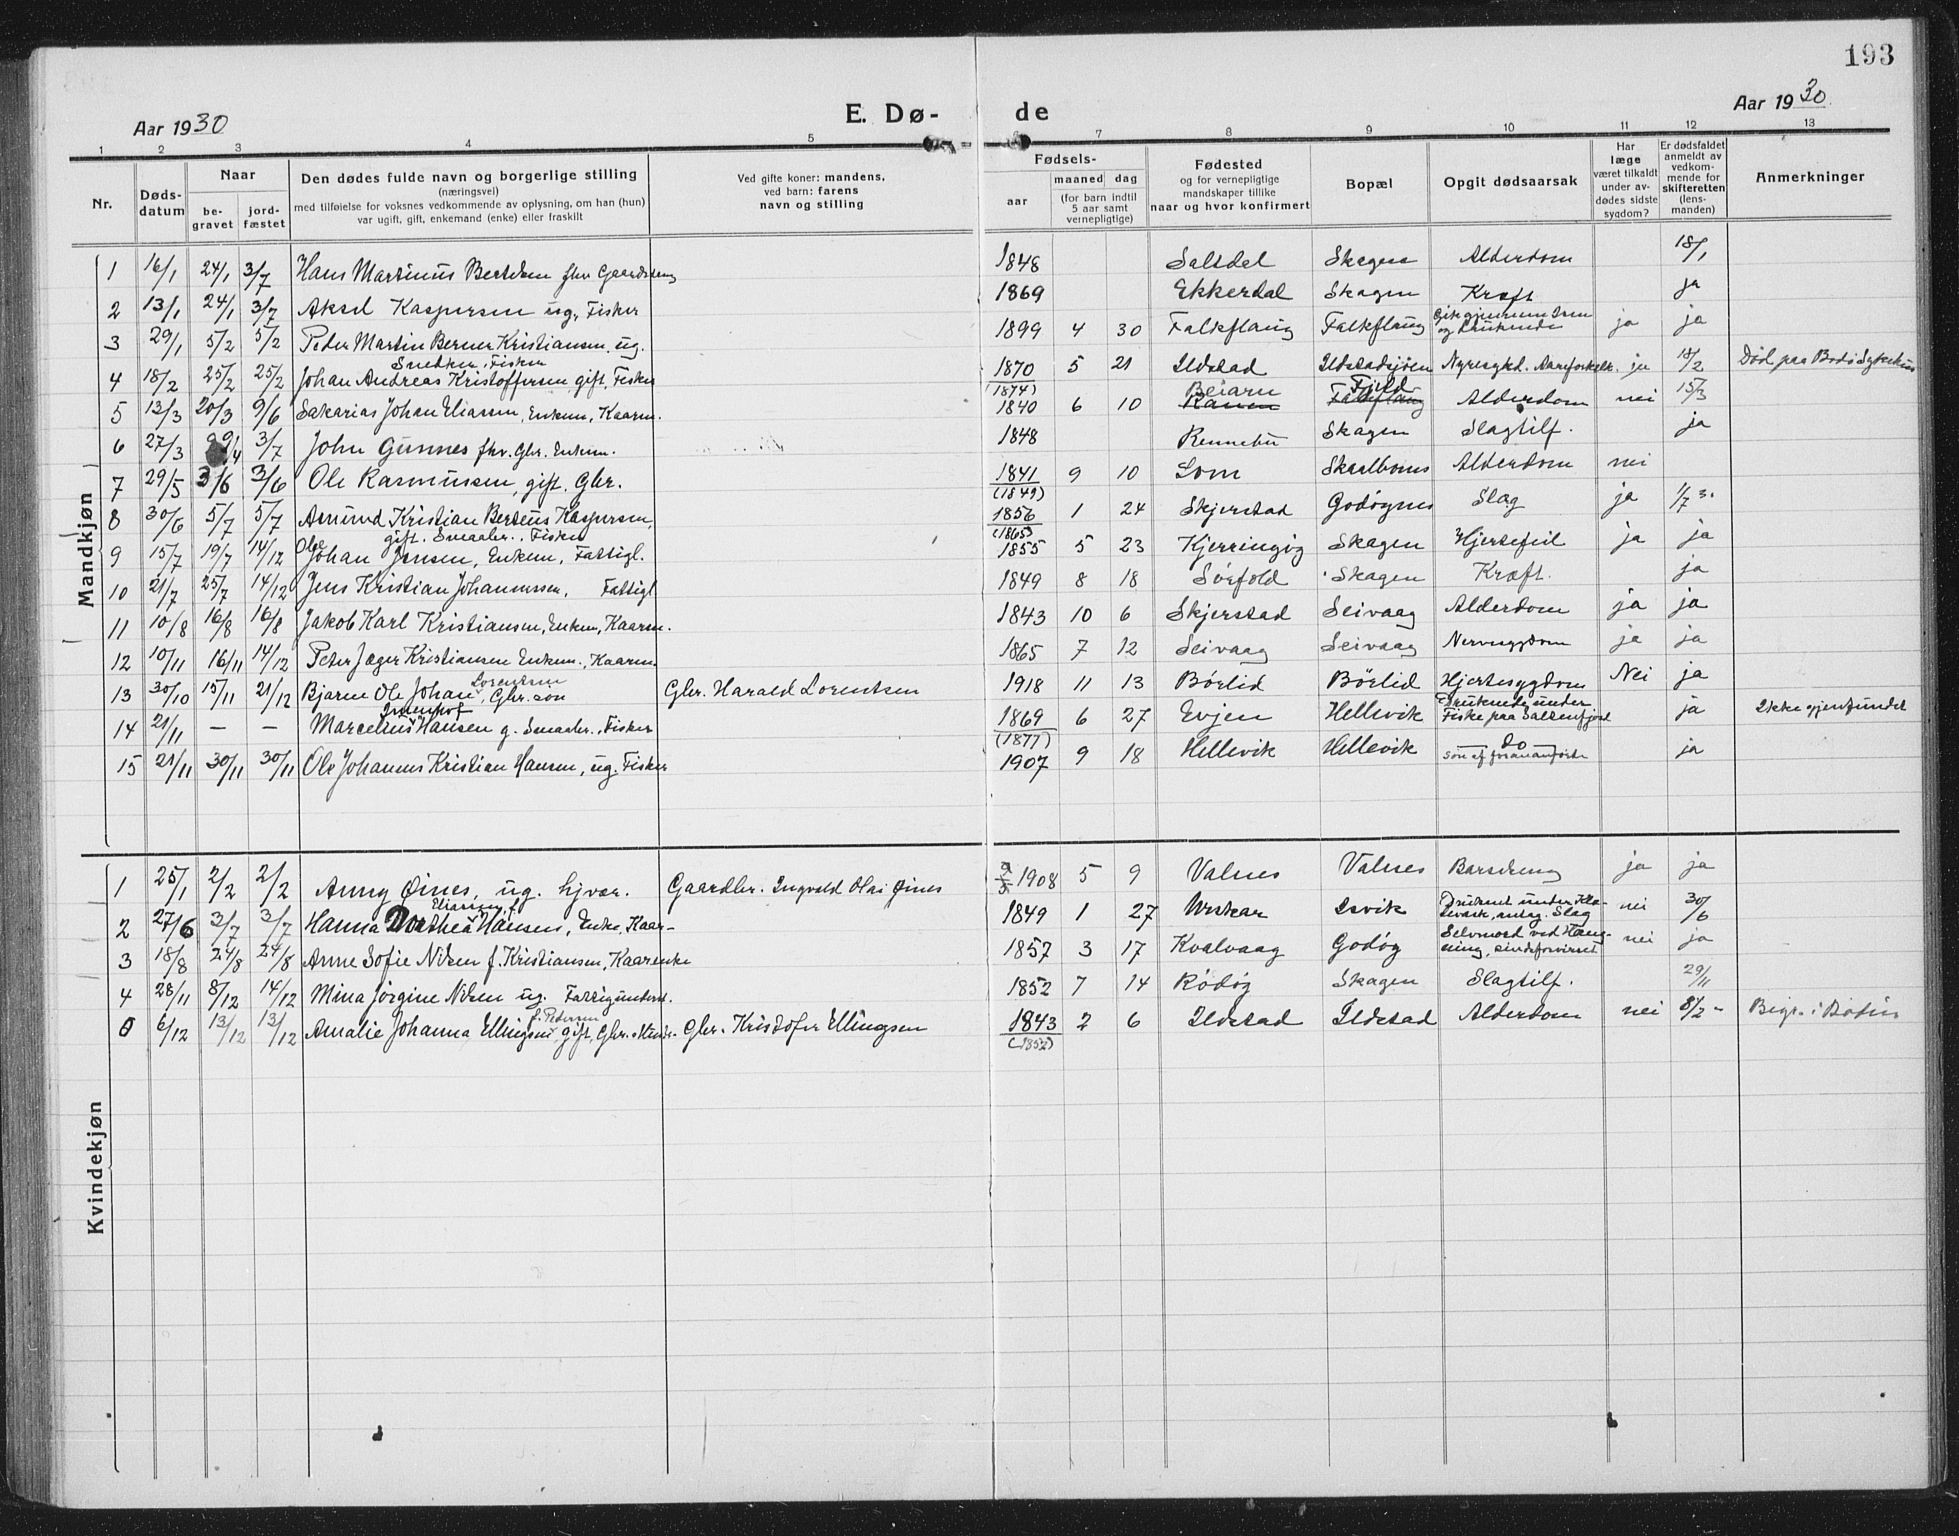 193
Aar 1930
E. Dø-
de
Aar 1930
1 2 3 4 5 6 7 8 9 10 11 12 13
Nr.
Døds-
datum
Naar
be-
gravet
jord-
fæstet
Den dødes fulde navn og borgerlige stilling
(næringsvei)
med tilføielse for voksnes vedkommende av oplysning, om han (hun)
var ugift, gift, enkemand (enke) eller fraskilt
Ved gifte koner: mandens,
ved barn: farens
navn og stilling
Fødsels-
aar
maaned dag
(for barn indtil
5 aar samt
vernepligtige)
Fødested
og for vernepligtige
mandskaper tillike
naar og hvor konfirmert
Bopæl
Opgit dødsaarsak
Har
læge
været tilkaldt
under av-
dødes sidste
sygdom?
Er dødsfaldet
anmeldt av
vedkom-
mende for
skifteretten
(lens-
manden)
Anmerkninger
Mandkjøn
1 16/1 24/1 3/7 Hans Martinus Bertsen fhv. 1848 Saltdal Skagen Alderdom 18/1
2 13/1 24/1 3/7 Aksel Kaspersen ug. Fisker 1869 Ekkerdal Skagen Kræft ja
3 29/1 5/2 5/2 Peder Martin Berner Kristiansen, ug. 1899 4 30 Falkflaug Falkflaug Gik gjennem isen ja ja
Snedker, Fisker og druknede
4 18/2 25/2 25/2 Johan Andreas Kristoffersen, gift, Fisker 1870 (1874) 5 21 Ildstad Ildstadsjøen Nyresygd. Aareforkalk. ja 18/2 Død paa Bodø Sykehus
5 13/3 20/3 9/6 Sakarias Johan Eliassen, Enkem, Kaarm. 1840 6 10 Beiarn Fjeld Falkflaug Alderdom nei 15/3
6 27/3 3/7 John Gunnes fhv. Gbr. Enkem. 1848 Rennebu Skagen Slagtilf. ja
7 29/5 3/6 3/6 Ole Rasmussen, gift. Gbr. 1841 (1849) 9 10 Lom Skaalbones Alderdom nei
8 30/6 5/7 5/7 Amund Kristian Berteus Kaspersen, 1856 (1865) 1 24 Skjerstad Godøynes Slag ja 1/7
gift. Smaabr., Fisker
9 15/7 19/7 14/12 Ole Johan Jensen, Enkem, Fattigl. 1855 5 23 Kjerringøy Skagen Hjertefeil ja ja
10 21/7 25/7 14/12 Jens Kristian Johannessen, Fattigl 1849 8 18 Sørfold Skagen Kræft. ja
11 10/8 16/8 16/8 Jakob Karl Kristiansen, Enkem, Kaarm. 1843 10 6 Skjerstad Seivaag Alderdom ja ja
12 10/11 16/11 14/12 Peter Jæger Kristiansen Enkem., Kaarm. 1865 7 12 Seivaag Seivaag Nervesygdom ja ja
13 30/10 15/11 21/12 Bjarne Ole Johan Lorentsen, Gbr. søn Gbr. Harald Lorentsen 1918 11 13 Børlid Børlid Hjertesygdom Nei ja
14 21/11 - - Marcelius Hansen g. Smaabr., Fisker 1869 (1877) 6 27 Evjen Hellevik Druknede under ja Ikke gjenfundet
Fiske paa Saltenfjord
15 21/11 30/11 30/11 Ole Johannes Kristian Hansen, ug. Fisker 1907 9 18 Hellevik Hellevik do ja
søn af forananførte
Kvindekjøn
1 25/1 2/2 2/2 Anny Øines, ug. hjvær. Gaardbr. Ingvald Olai Øines 1908 5 9 Valnes Valnes Barseng ja ja
2 27/6 3/7 3/7 Hanna Dorthea Eliassen Hansen, Enke, Kaar- 1849 1 27 Isvik Druknet under Klæ- nei 30/6
devask, antag. Slag
3 18/8 24/8 24/8 Anne Sofie Nilsen f. Kristiansen, Kaarenke 1857 3 17 Kvalvaag Godøy Selvmord ved Hæng- nei ja
ning, sindsforvirret
4 28/11 8/12 14/12 Mina Jørgine Nilsen ug. Fattigunderst. 1852 7 14 Rødøy Skagen Slagtilf. 29/11
5 6/12 13/12 13/12 Amalie Johanna Ellingsen f. Pedersen, gift, Gbr. Gbr. Kristofer Ellingsen 1843 (1852) 2 6 Ildstad Ildstad Alderdom nei 8/12 Begr. i Bodin